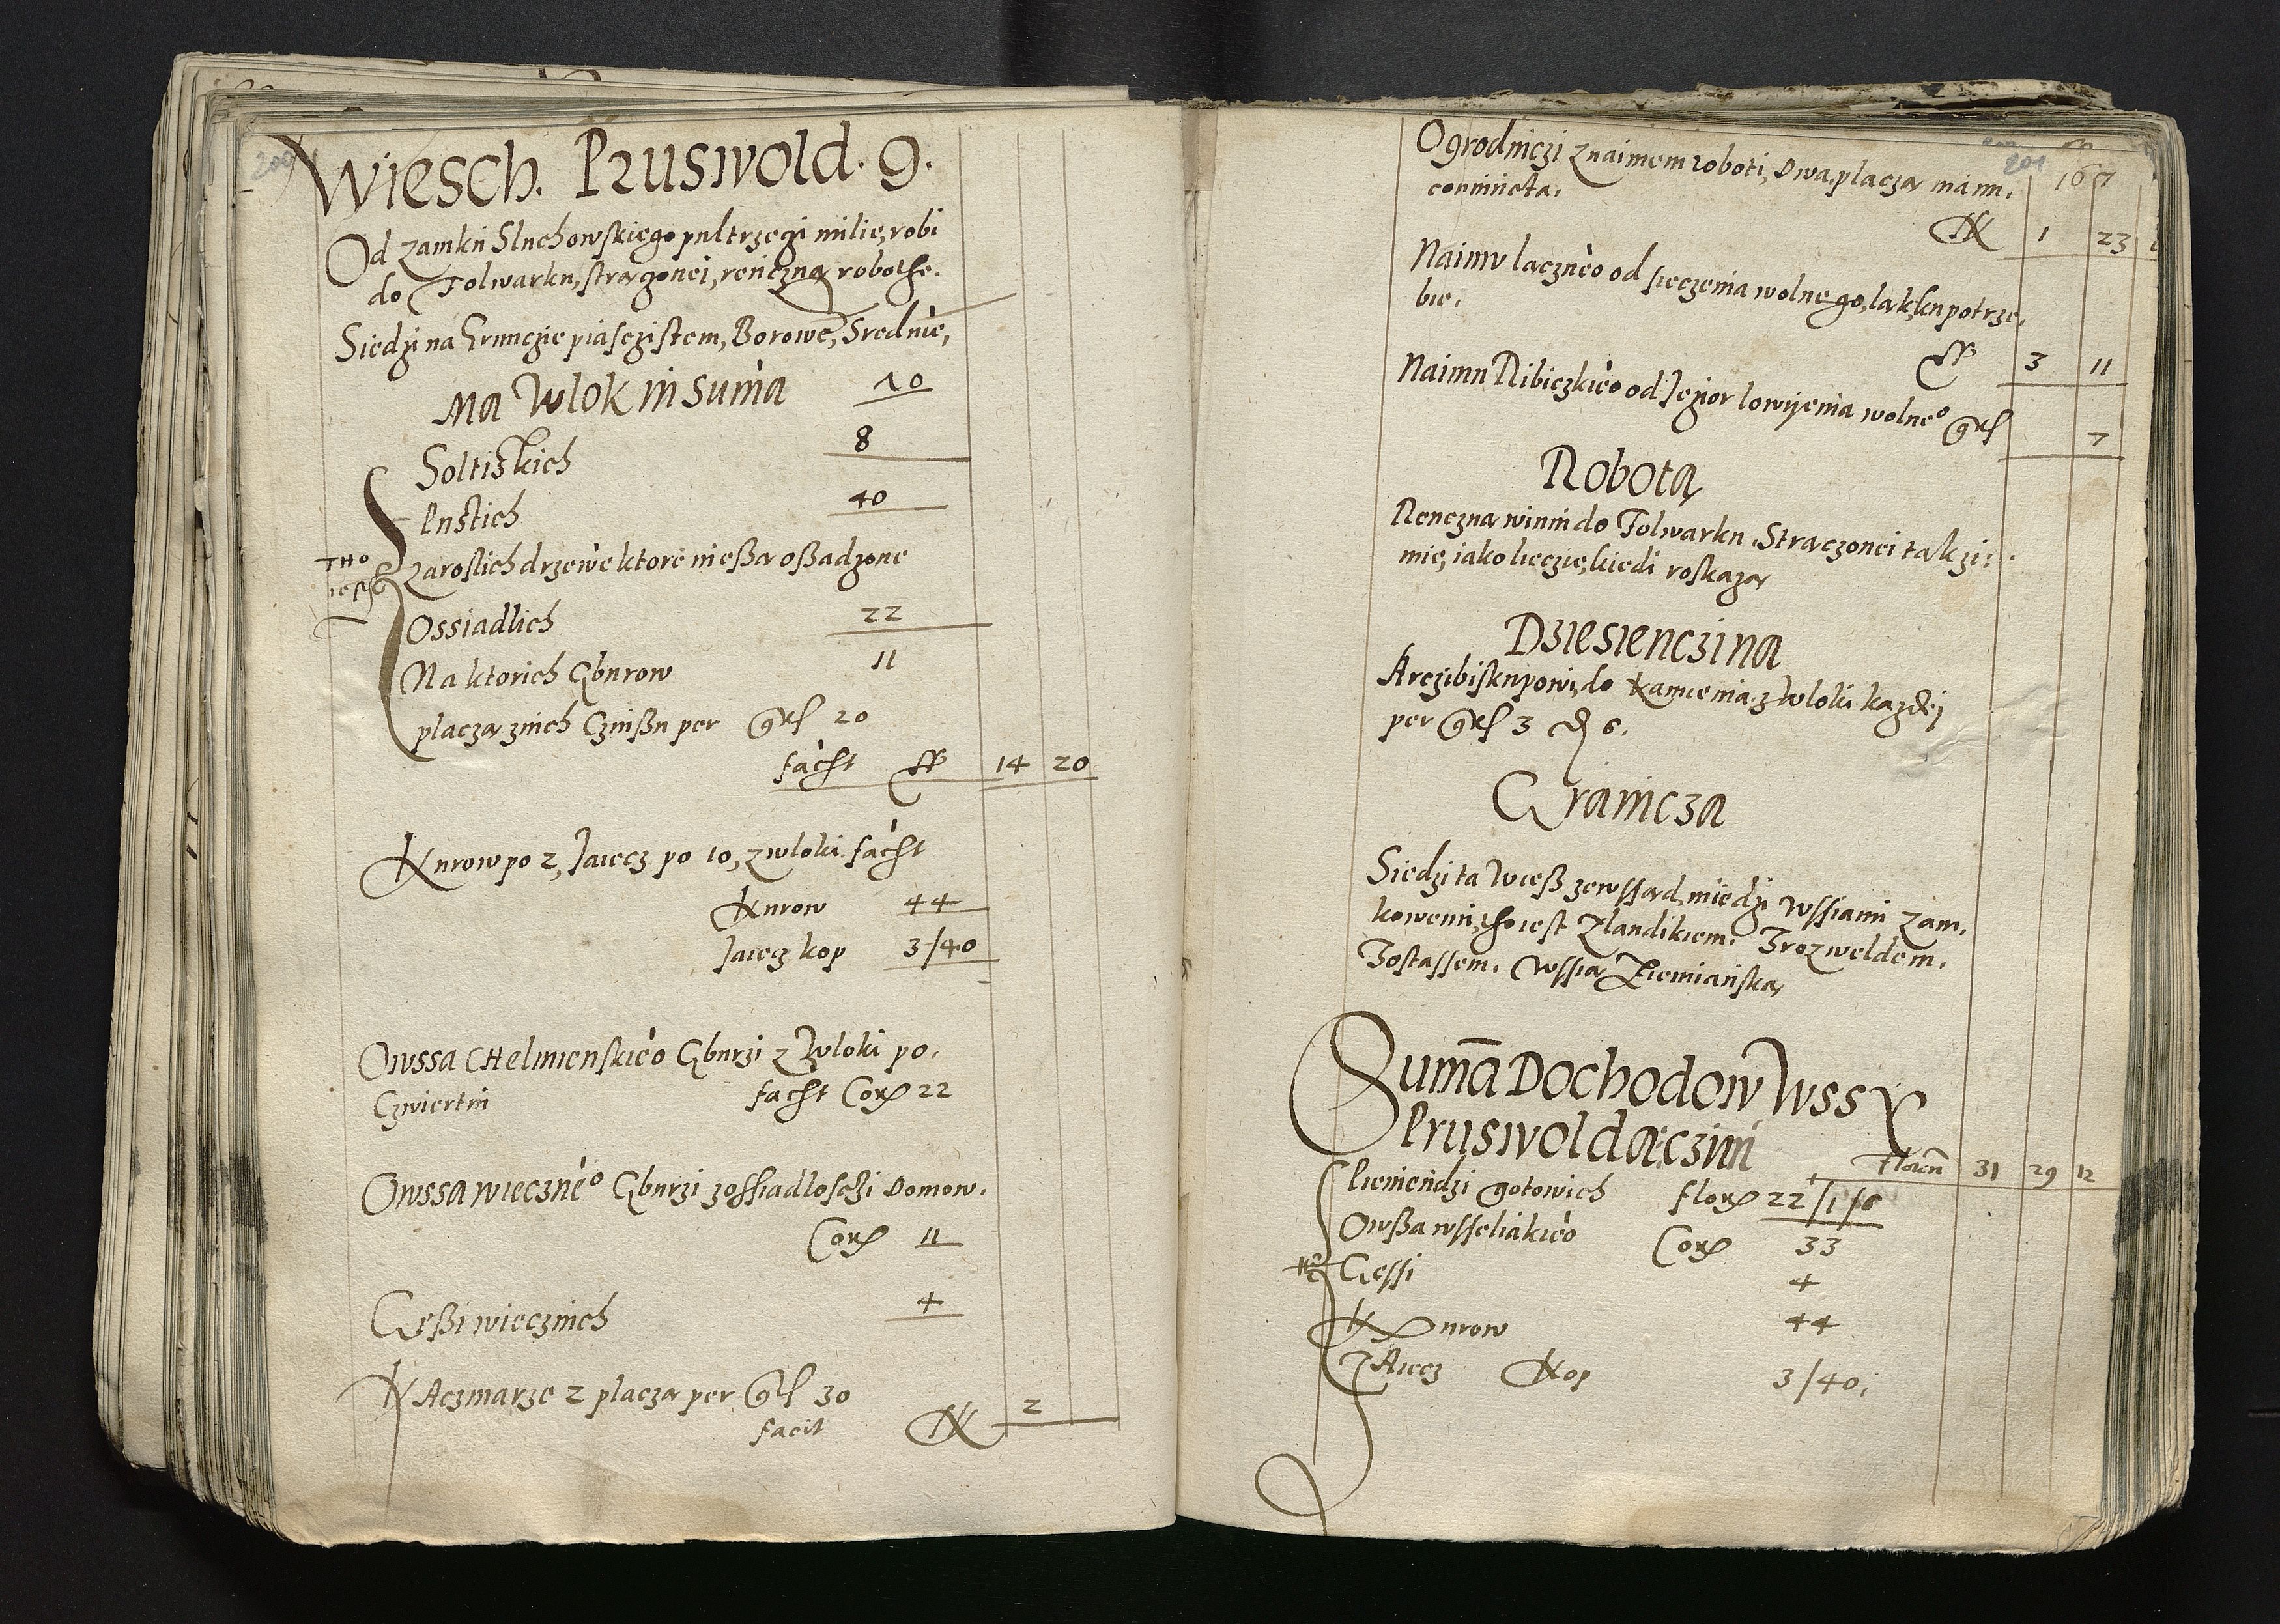 200
Wiesch. Pruswold. 9.
Od zamku Sluchowskiego pultrzegi milie, robi
do Folwarku, stragonei, renczną robothe.
Siedzi na Grunczie piasczistem, Borowe, Srednie,
Ma Wlok in Suma 70
Soltizkich 8
Pustich 40
THO iest
zaroslich drzewe ktore nießą oßadzone
Ossiadlich 22
Na ktorich Gburow 11
placzą znich Czinßu per grs 20
facit fl 14 20
Kurow po 2, Jaiecz po 10, z wloki facit
Kurow 44
Jaiecz kop 3/40
Owssa CHelmienskieo Gburzi z Wloki po.
Czwiertni facit Cor 22
Owssa wieczneo Gburzi zossiadlosczi Domow.
Cor 11
Gęßi wiecznich 4
KAczmarze 2 placzą per grs 30
facit fl 2
201
167
Ogrodniczi znaimem roboti, Dwa, placzą na nn.
conuincta.
fl 1 23
Naimu laczneo od sieczenia wolnego, lak, ku potrze.
bie.
fl 3 11
Naimu Ribiczkieo od Jezior lowijenia wolneo grs 7
Robotą
Renczną winni do Folwarku. Straczonei tak zi:
mie, iako lieczie, kiedi roskazą
Dziesienczina
Arczibiskupowi, do Kamienia, z Wloki kazdej
per grs 3 d 6.
Granicza
Siedzi ta Wieß zewssząd, miedzi Wssiami zam.
kowemi, tho iest Zlandikiem. Frozweldem.
Fostassem. Wssią Ziemianską
Suma Dochodow Wssy
Pruswoldą czini
floren 31 29 12
Pieniendzi gotowich flor 22/1/6
Owßa wsseliakieo Cor 33
Gessi 4
Kurow 44
JAiecz Kop 3/40.